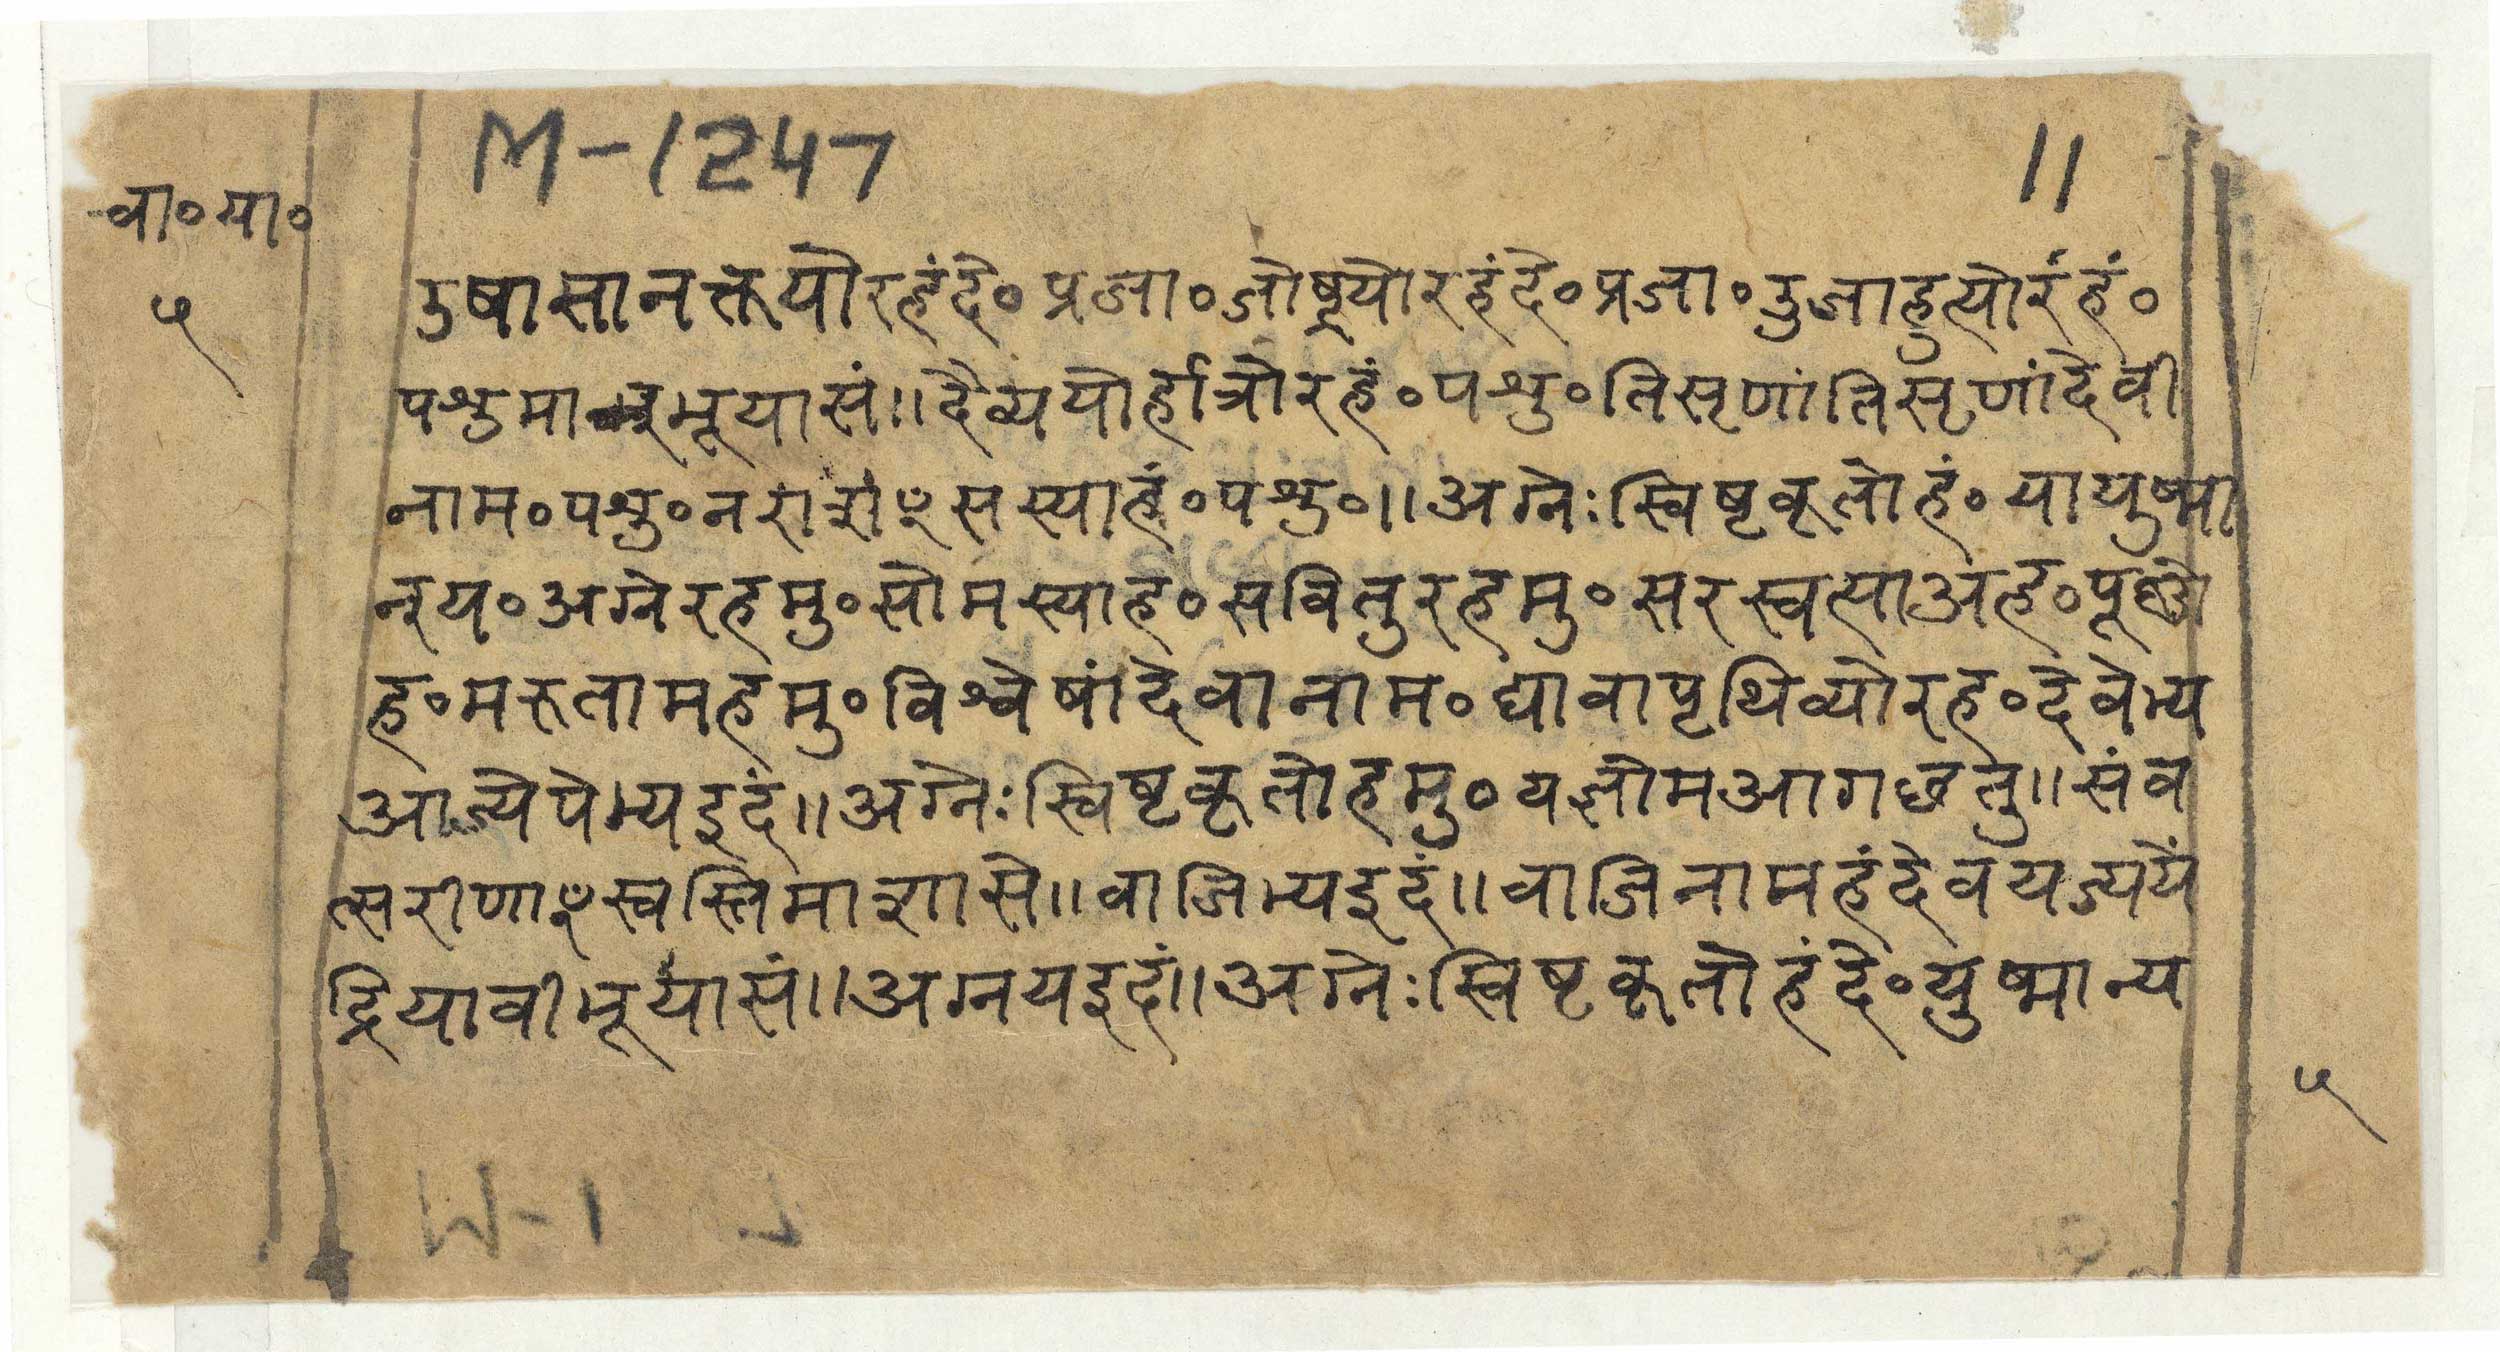 M-1247
11
वा॰या॰
५
उषासानक्तयोरहंदे॰प्रजा॰जोष्ट्रयोरहंदे॰प्रजा॰दुजाहुत्योरंहं॰
पशुमान्भूयासं॥दैव्ययोर्हात्रोरहं॰पशु॰तिसृणांतिसृणांदेवी
नाम॰पशु॰नराशंꣳसस्याहं॰पशु॰॥अग्नेःस्विष्टकृतोहं॰यायुष्मा
न्य॰अग्नेरहमु॰सोमस्याह॰सवितुरहमु॰सरस्वत्याअह॰पूष्णो
ह॰मरुतामहमु॰विश्वेषांदेवानाम॰द्यावापृथिव्योरह॰देवेभ्य
आज्येपेभ्यइदं॥अग्नेःस्विष्टकृतोहमु॰यज्ञोमआगछतु॥संव
त्सरीणाꣳस्वस्तिमाशासे॥वाजिभ्यइदं॥वाजिनामहंदेवयज्ययें
द्रियावीभूर्यासं॥अग्नयइदं॥अग्नेःस्विष्टकृतोहंदे॰युष्मान्य
५